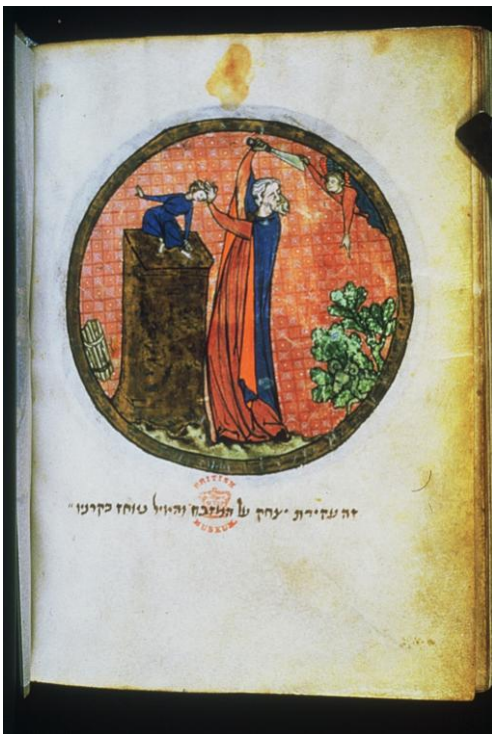 זה עקידת יצחק על המזבח והאיל אוחז בקרנו
BRITISH
MUSEUM